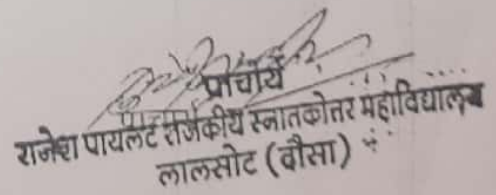 प्राचार्य
राजेश पायलट राजकीय स्नातकोत्तर महाविद्यालय
लालसोट (दौसा)